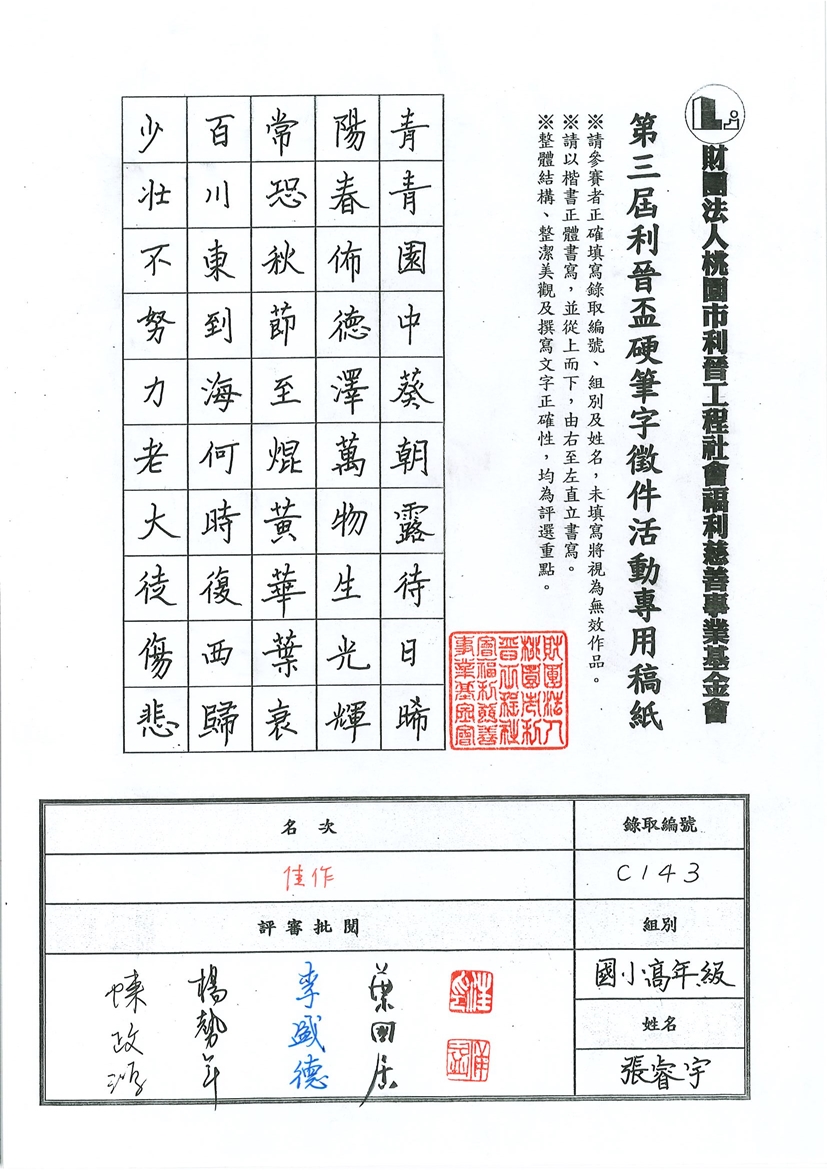 財團法人桃園市利晉工程社會福利慈善事業基金會
第三屆利晉盃硬筆字徵件活動專用稿紙
※請參賽者正確填寫錄取編號、組別及姓名，未填寫將視為無效作品。
※請以楷書正體書寫，並從上而下，由右至左直立書寫。
※整體結構、整潔美觀及撰寫文字正確性，均為評選重點。
財團法人
桃園市利
晉工程社
會福利慈善
事業基金會
青青園中葵朝露待日晞
陽春佈德澤萬物生光輝
常恐秋節至焜黃華葉衰
百川東到海何時復西歸
少壯不努力老大徒傷悲
錄取編號
C143
組別
國小高年級
姓名
張睿宇
名次
佳作
評審批閱
葉國居
李盛德
楊勢年